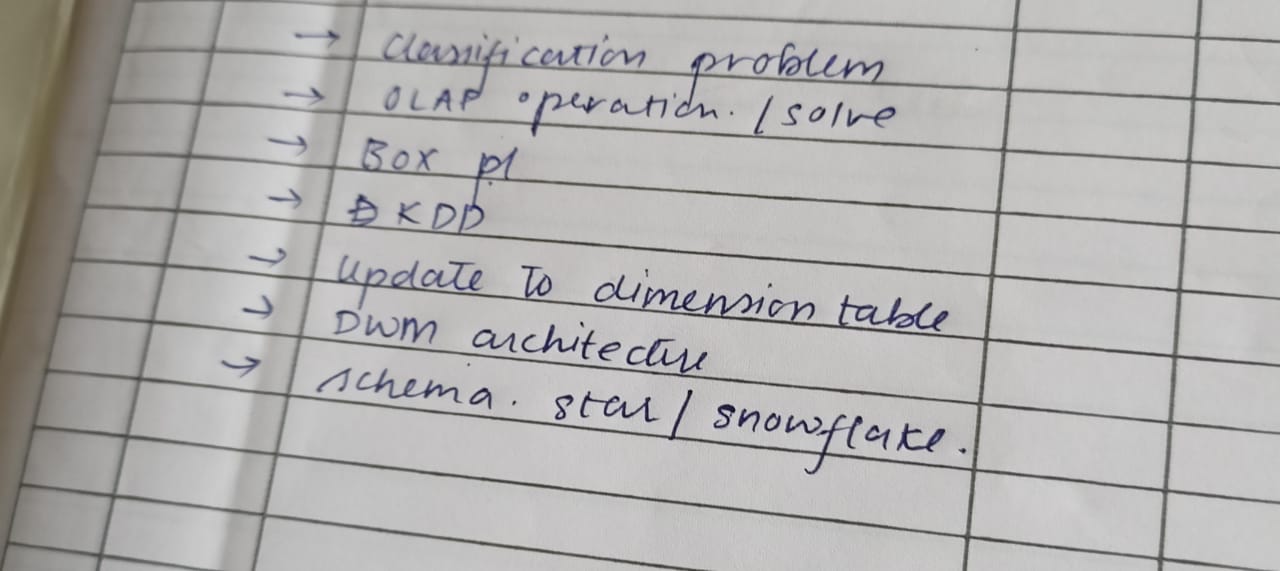 → Classification problem
→ OLAP operation. / solve
→ Box pl
→ KDD
→ update to dimension table
→ DWM architecture
→ schema. star / snowflake.